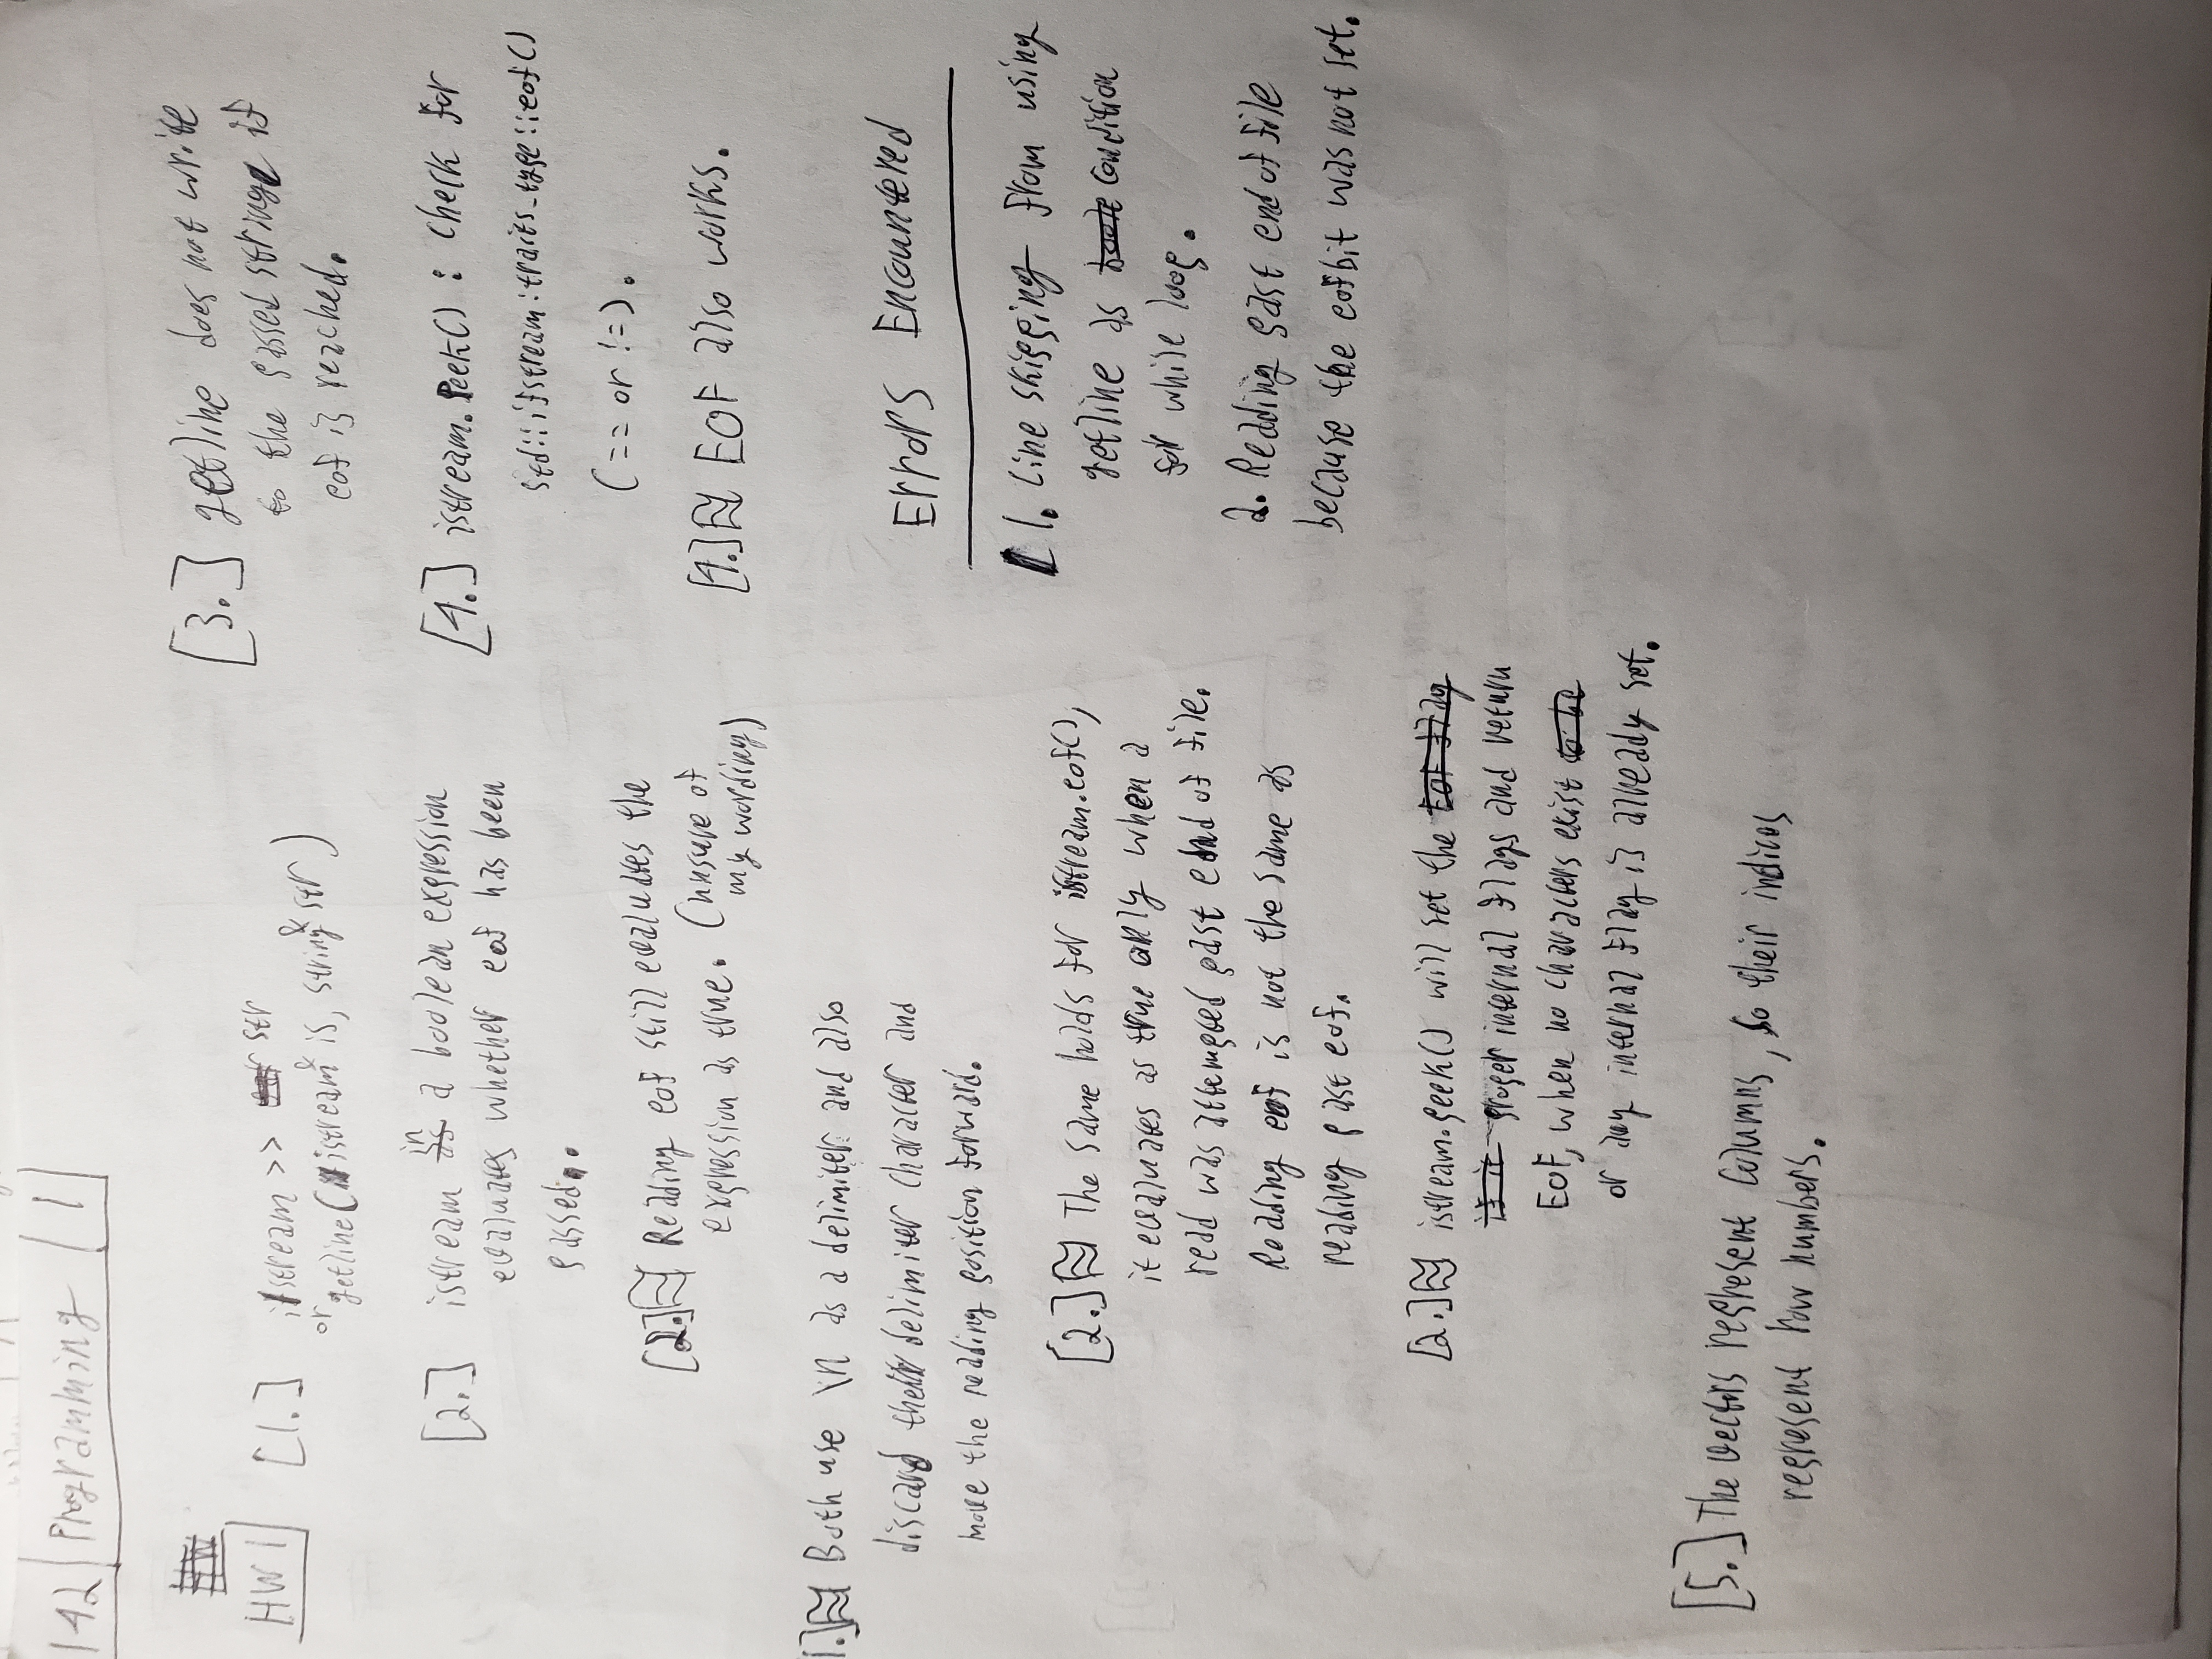 142 | Programming | 1
HW
HW 1
[1.] istream >> str
or getline(istream& is, string& str)
[2.] istream in a boolean expression
evaluates whether eof has been
passed.
[2.] Reading eof still evaluates the
expression as true. (unsure of
my wording)
1.] Both use \n as a delimiter and also
discard the delimiter character and
move the reading position forward.
[2.] The same holds for istream.eof(),
it evaluates as true only when a
read was attempted past end of file.
Reading eof is not the same as
reading past eof.
[2.] istream.peek() will set the Eof flag
if it proper internal flags and return
EOF, when no characters exist to be
or any internal flag is already set.
[5.] The vectors represent columns, so their indices
represent row numbers.
[3.] getline does not write
to the passed string if
eof is reached.
[4.] istream.peek() : Check for
std::ifstream:traits_type::eof()
(== or !=).
[4.] EOF also works.
Errors Encountered
1. Line skipping from using
getline as condition
for while loop.
2. Reading past end of file
because the eofbit was not set.